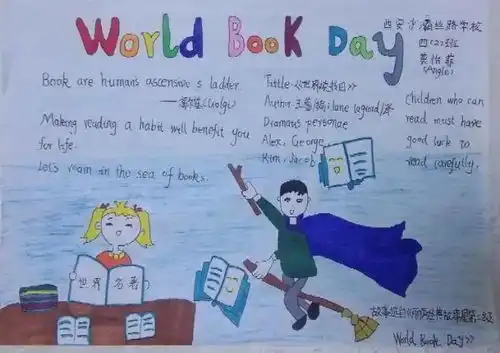 World Book Day
西安沪灞丝路学校
四(2)班
(Angle)
Book are human's ascensive s ladder.
——高尔基(Golgi)
Makeng reading a habit well benefit you
for life.
Let's roam in the sea of books.
Tittle:《世界读书日》
Author:
Dramatis personae
Alex, George
Kim, Jacob
Children who can
read must have
good luck to
read carefully.
世界 名著
World Book Day》